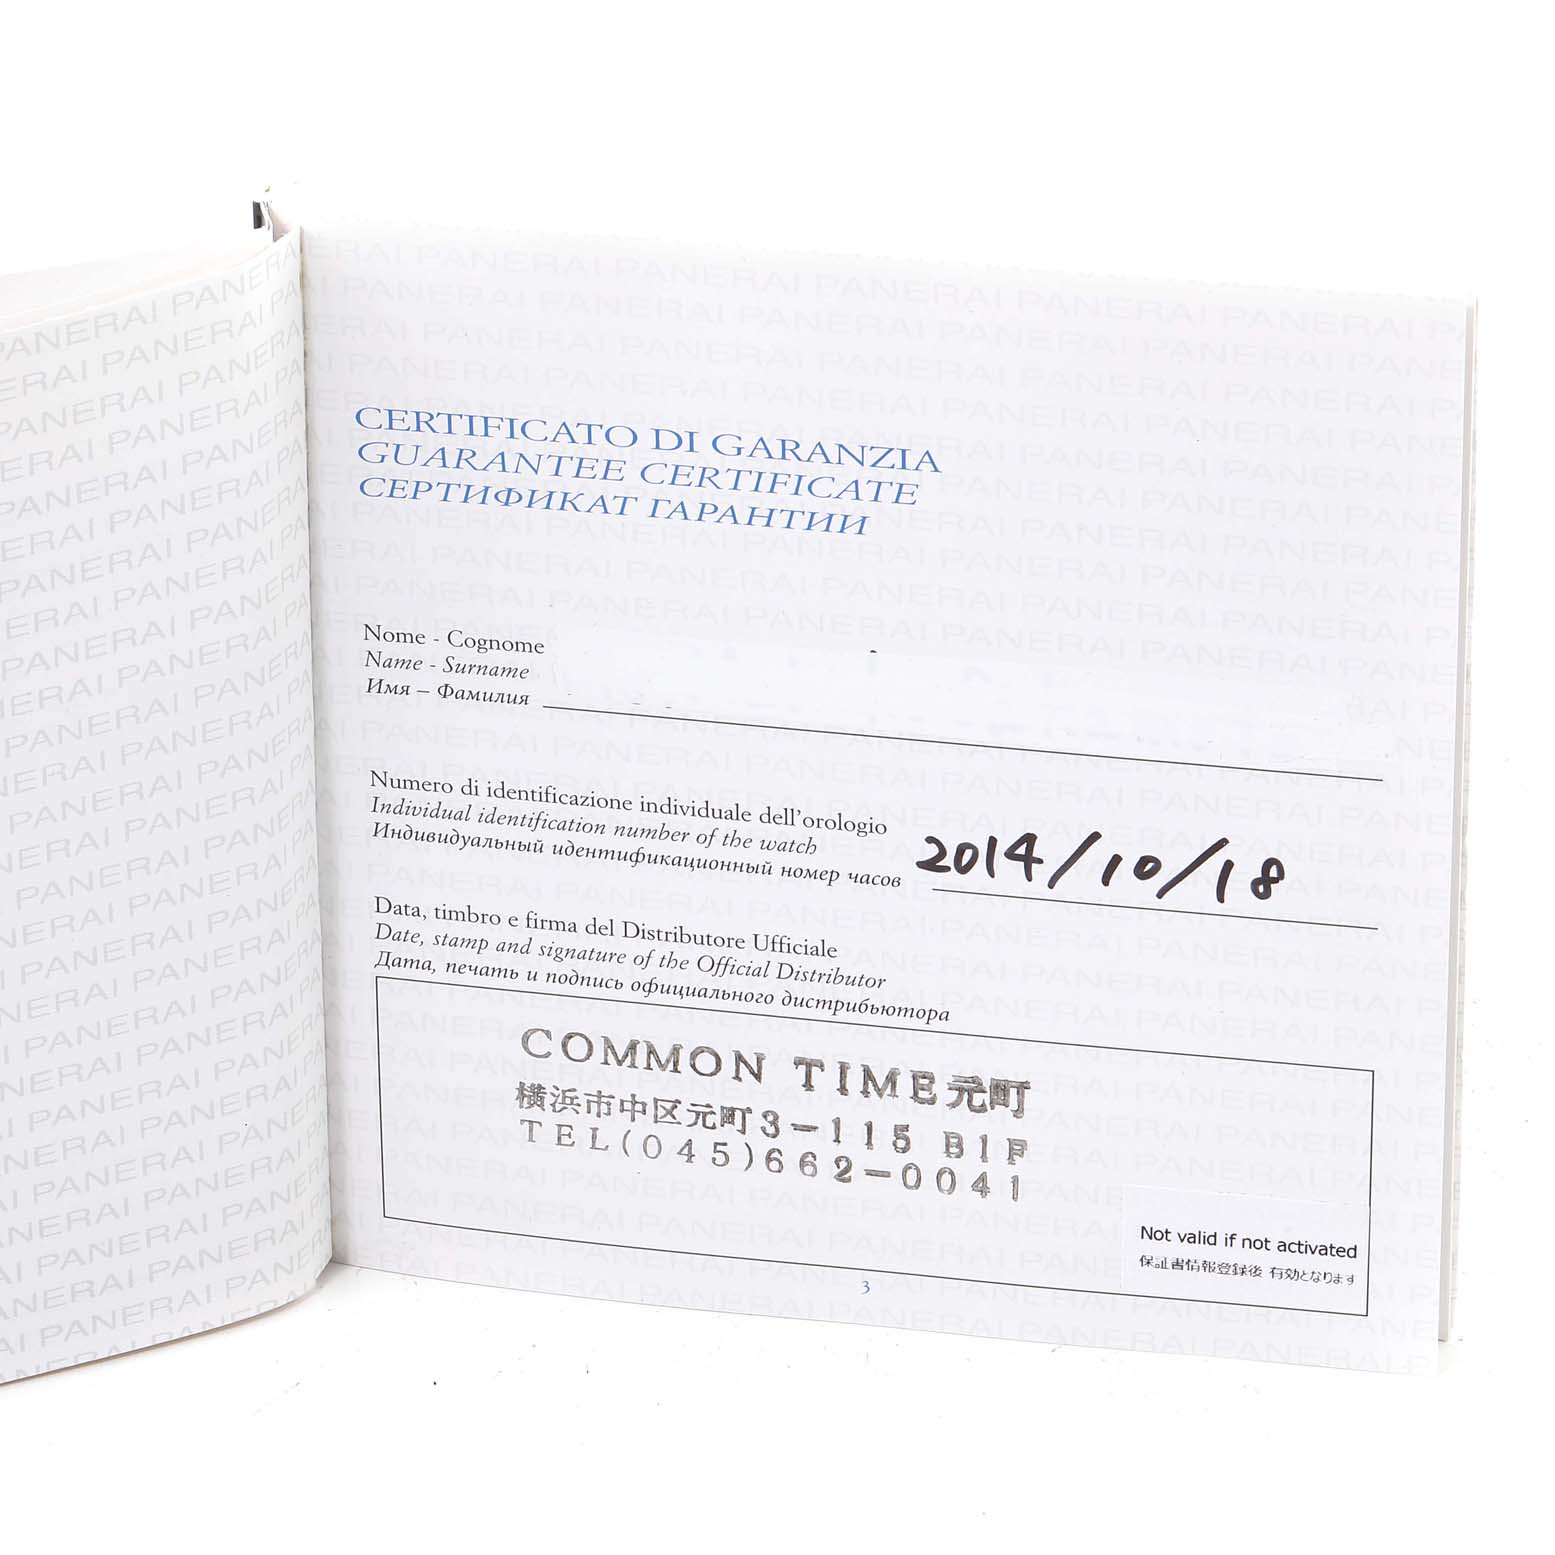 CERTIFICATO DI GARANZIA
GUARANTEE CERTIFICATE
СЕРТИФИКАТ ГАРАНТИИ
Nome - Cognome
Name - Surname
Имя – Фамилия
Numero di identificazione individuale dell'orologio
Individual identification number of the watch
Индивидуальный идентификационный номер часов
2014/10/18
Data, timbro e firma del Distributore Ufficiale
Date, stamp and signature of the Official Distributor
Дата, печать и подпись официального дистрибьютора
COMMON TIME元町
横浜市中区元町3-115 B1F
TEL(045)662-0041
Not valid if not activated
保証書情報登録後 有効となります
3